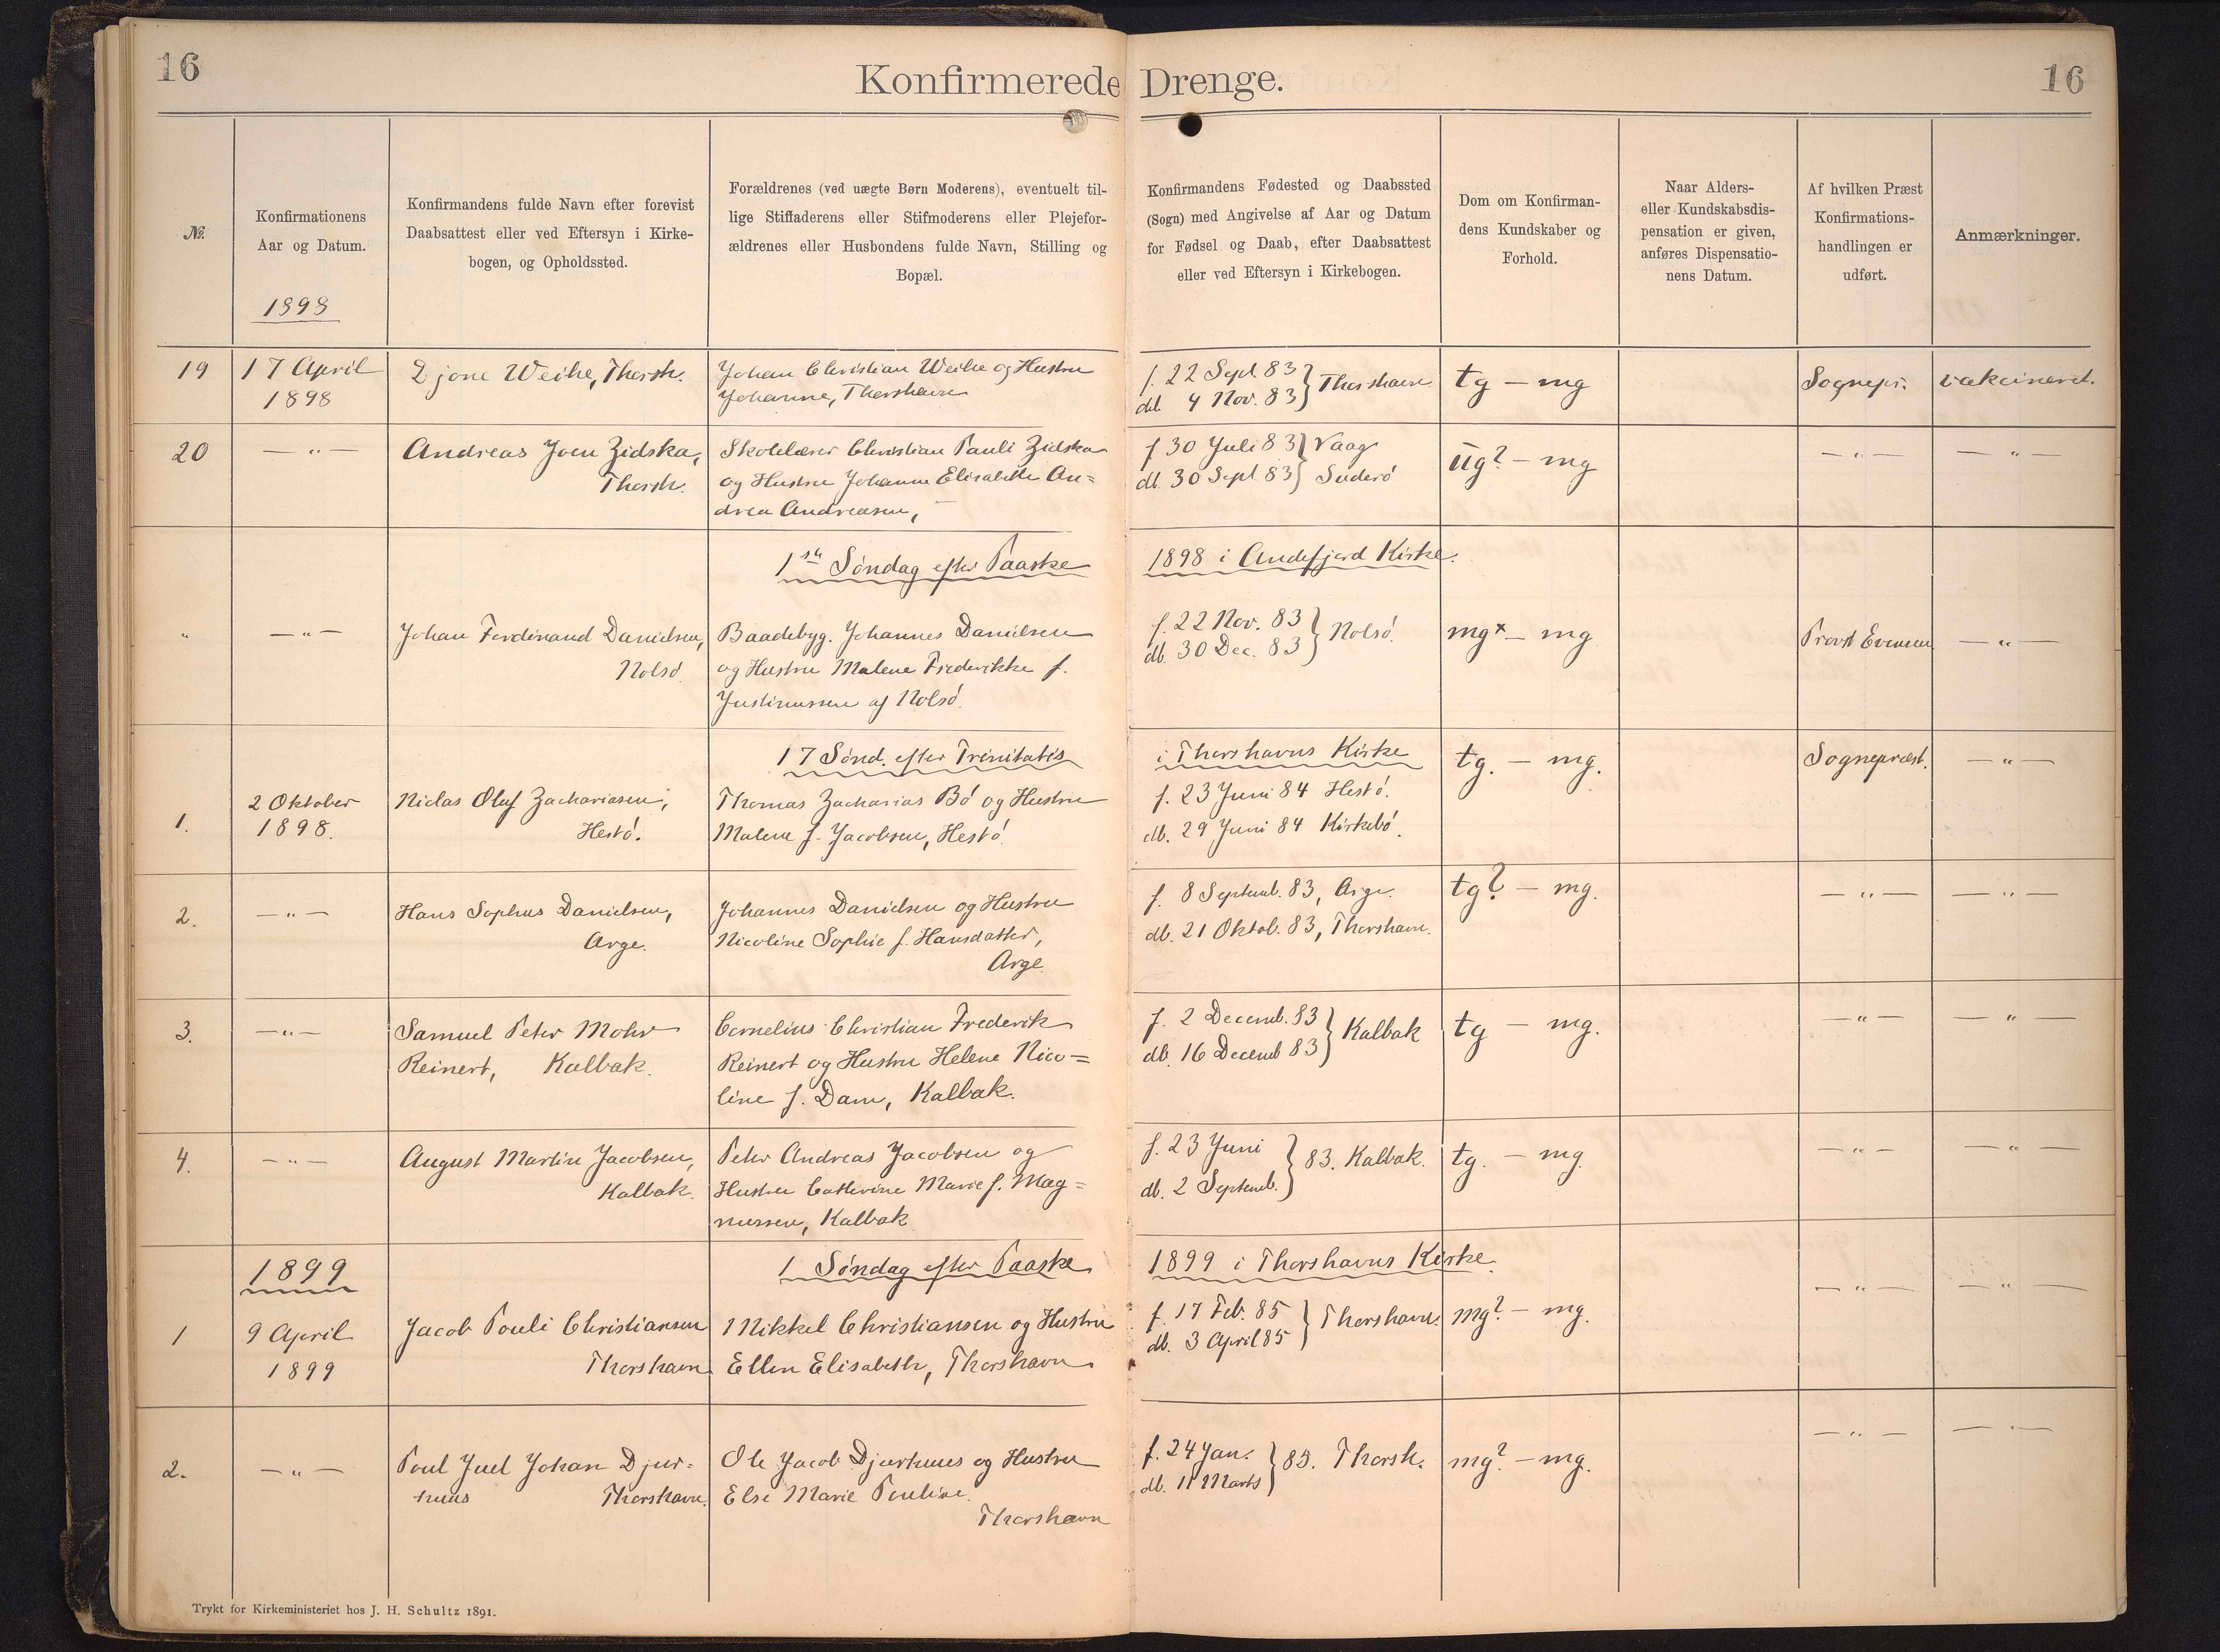 16
Konfirmerede Drenge.
16
№.
Konfirmationens
Aar og Datum.
1898
Konfirmandens fulde Navn efter forevist
Daabsattest eller ved Eftersyn i Kirke-
bogen, og Opholdssted.
Forældrenes (ved uægte Børn Moderens), eventuelt til-
lige Stiffaderens eller Stifmoderens eller Plejefor-
ældrenes eller Husbondens fulde Navn, Stilling og
Bopæl.
Konfirmandens Fødested og Daabssted
(Sogn) med Angivelse af Aar og Datum
for Fødsel og Daab, efter Daabsattest
eller ved Eftersyn i Kirkebogen.
Dom om Konfirman-
dens Kundskaber og
Forhold.
Naar Alders-
eller Kundskabsdis-
pensation er given,
anføres Dispensatio-
nens Datum.
Af hvilken Præst
Konfirmations-
handlingen er
udført.
Anmærkninger.
19
17 April
1898
Djone Weihe, Thorsh.
Johan Christian Weihe og Hustru
Johanne, Thorshavn
f. 22 Sept 83
db. 4 Nov. 83 } Thorshavn
tg — mg
Sognepr.
vakcineret.
20
— " —
Andreas Joen Zidska,
Thorsh.
Skolelærer Christian Pauli Zidska
og Hustru Johanne Elisabeth An=
drea Andreasen,
f 30 Juli 83 } Vaag
db. 30 Sept 83 } Suderö
ug? — mg
— " —
— " —
1ste Söndag efter Paaske
1898 i Andefjord Kirke.
"
— " —
Johan Ferdinand Danielsen,
Nolsö.
Baadebyg. Johannes Danielsen
og Hustru Malene Frederikke f.
Justinussen af Nolsö.
f. 22 Nov. 83
db. 30 Dec. 83 } Nolsö.
mgx — mg
Provst Evensen
— " —
17 Sönd. efter Trinitatis
i Thorshavns Kirke
1.
2 Oktober
1898.
Niclas Oluf Zachariasen,
Hestö.
Thomas Zacharias Bö og Hustru
Malene f. Jacobsen, Hestö
f. 23 Juni 84 Hestö.
db. 29 Juni 84 Kirkebö.
tg. — mg.
Sognepræst.
— " —
2.
— " —
Hans Sophus Danielsen,
Arge.
Johannes Danielsen og Hustru
Nicoline Sophie f. Hansdatter,
Arge
f. 8 Septemb. 83, Arge.
db. 21 Oktob. 83, Thorshavn.
tg? — mg.
— " —
— " —
3.
— " —
Samuel Peter Mohr
Reinert, Kalbak.
Cornelius Christian Frederik
Reinert og Hustru Helene Nico=
line f. Dam, Kalbak.
f. 2 Decemb. 83
db. 16 Decemb 83 } Kalbak
tg — mg.
— " —
— " —
4.
— " —
August Martin Jacobsen,
Kalbak.
Peter Andreas Jacobsen og
Hustru Cathrine Marie f. Mag=
nussen, Kalbak
f. 23 Juni
db. 2 Septemb. } 83. Kalbak.
tg. — mg.
— " —
— " —
1899
1 Söndag efter Paaske
1899 i Thorshavns Kirke.
1
9 April
1899
Jacob Pouli Christiansen
Thorshavn
Mikkel Christiansen og Hustru
Ellen Elisabeth, Thorshavn
f. 17 Feb. 85
db. 3 April 85 } Thorshavn.
mg? — mg.
— " —
— " —
2.
— " —
Poul Juel Johan Djur-
huus Thorshavn.
Ole Jacob Djurhuus og Hustru
Else Marie Pouline
Thorshavn
f. 24 Jan.
db. 11 Marts } 85. Thorsh.
mg? — mg.
— " —
— " —
Trykt for Kirkeministeriet hos J. H. Schultz 1891.